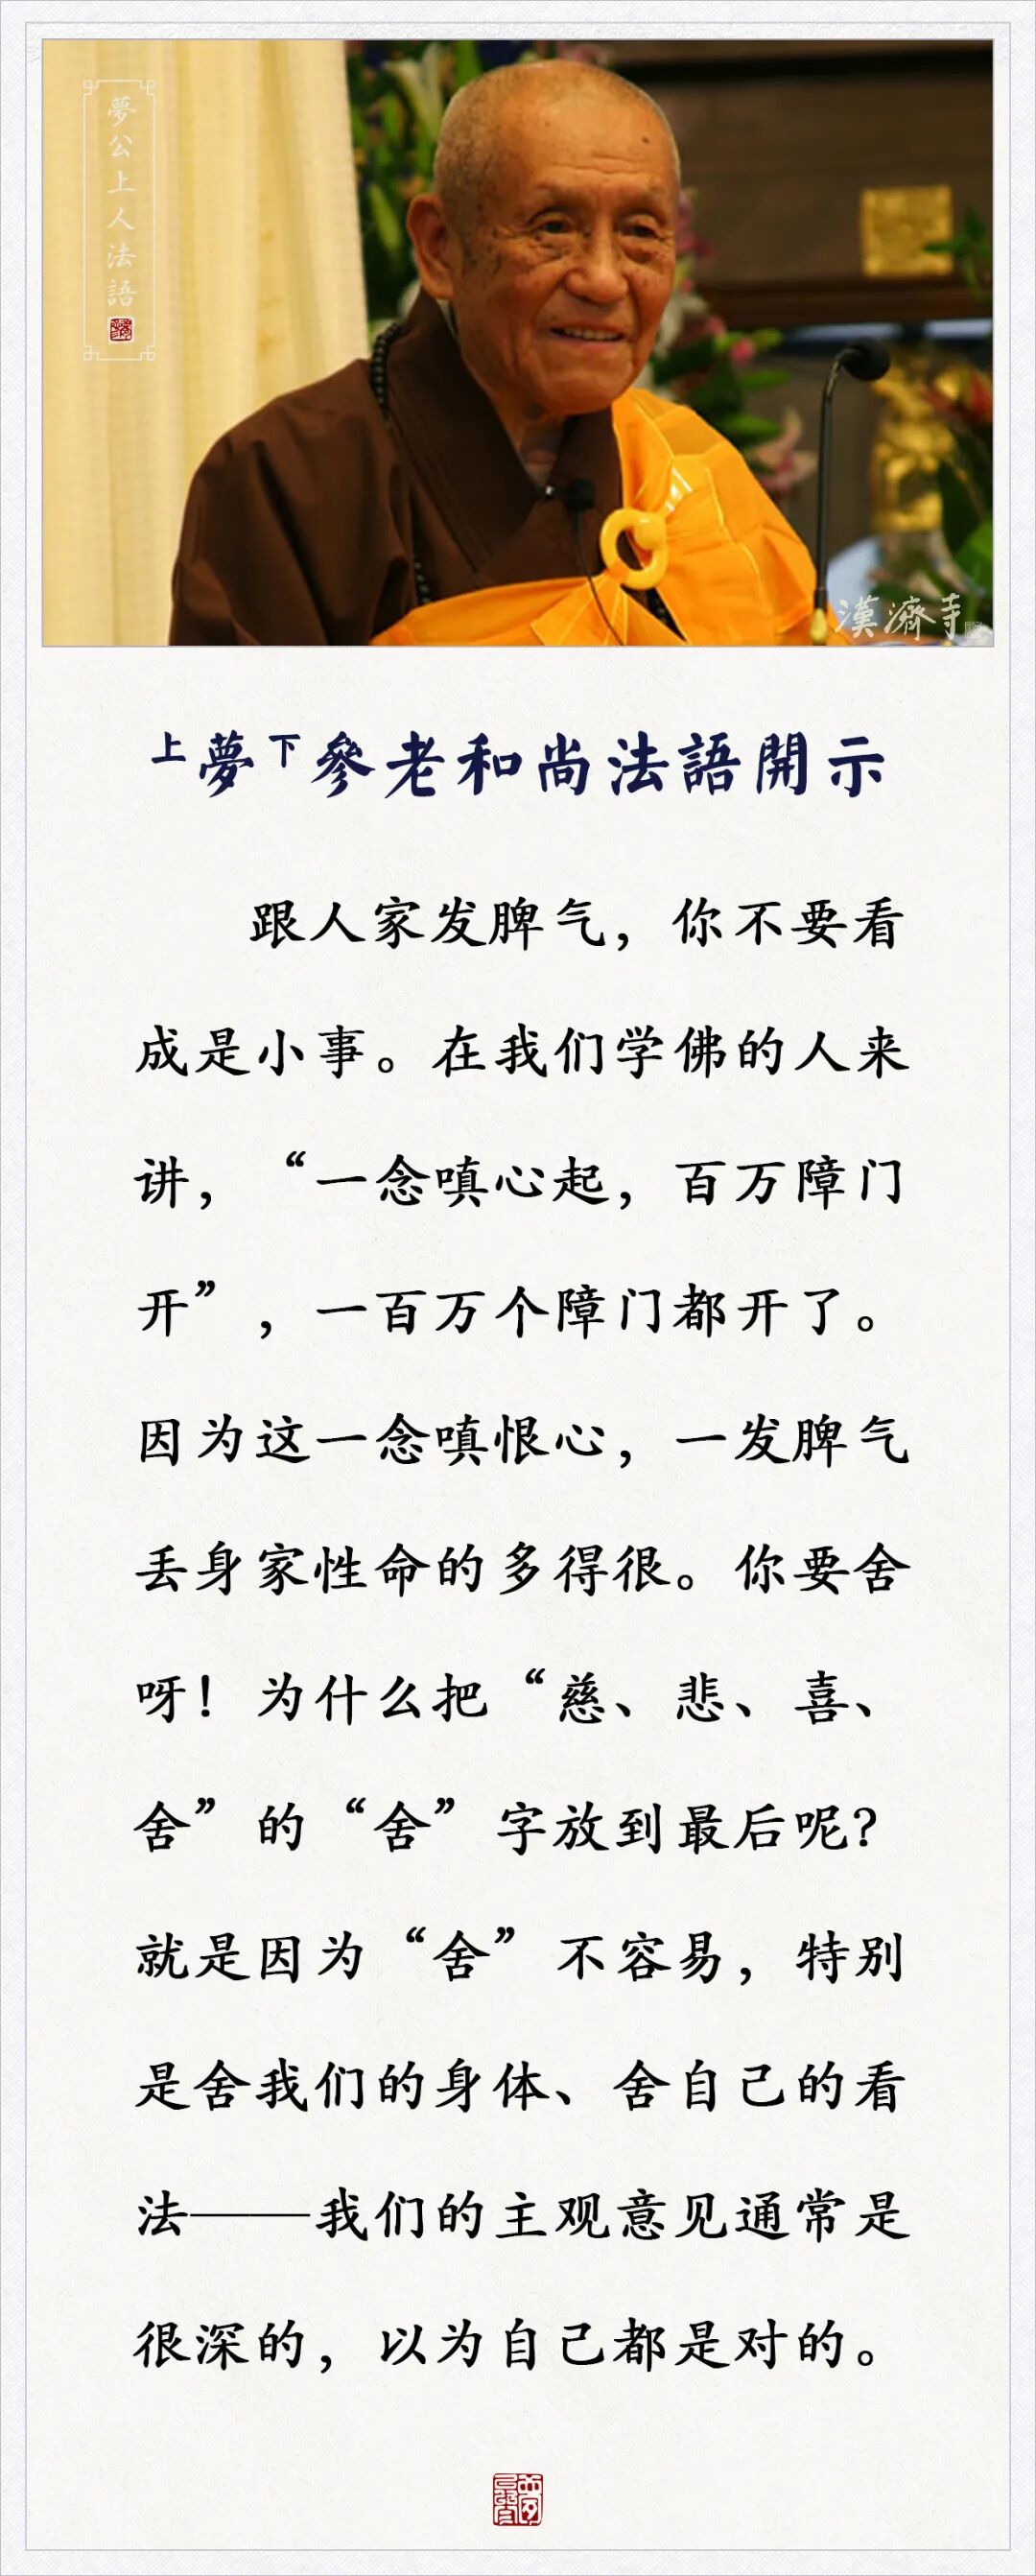 夢公上人法語
漢濟寺
上夢下參老和尚法語開示
跟人家发脾气，你不要看
成是小事。在我们学佛的人来
讲，“一念嗔心起，百万障门
开”，一百万个障门都开了。
因为这一念嗔恨心，一发脾气
丢身家性命的多得很。你要舍
呀！为什么把“慈、悲、喜、
舍”的“舍”字放到最后呢？
就是因为“舍”不容易，特别
是舍我们的身体、舍自己的看
法——我们的主观意见通常是
很深的，以为自己都是对的。